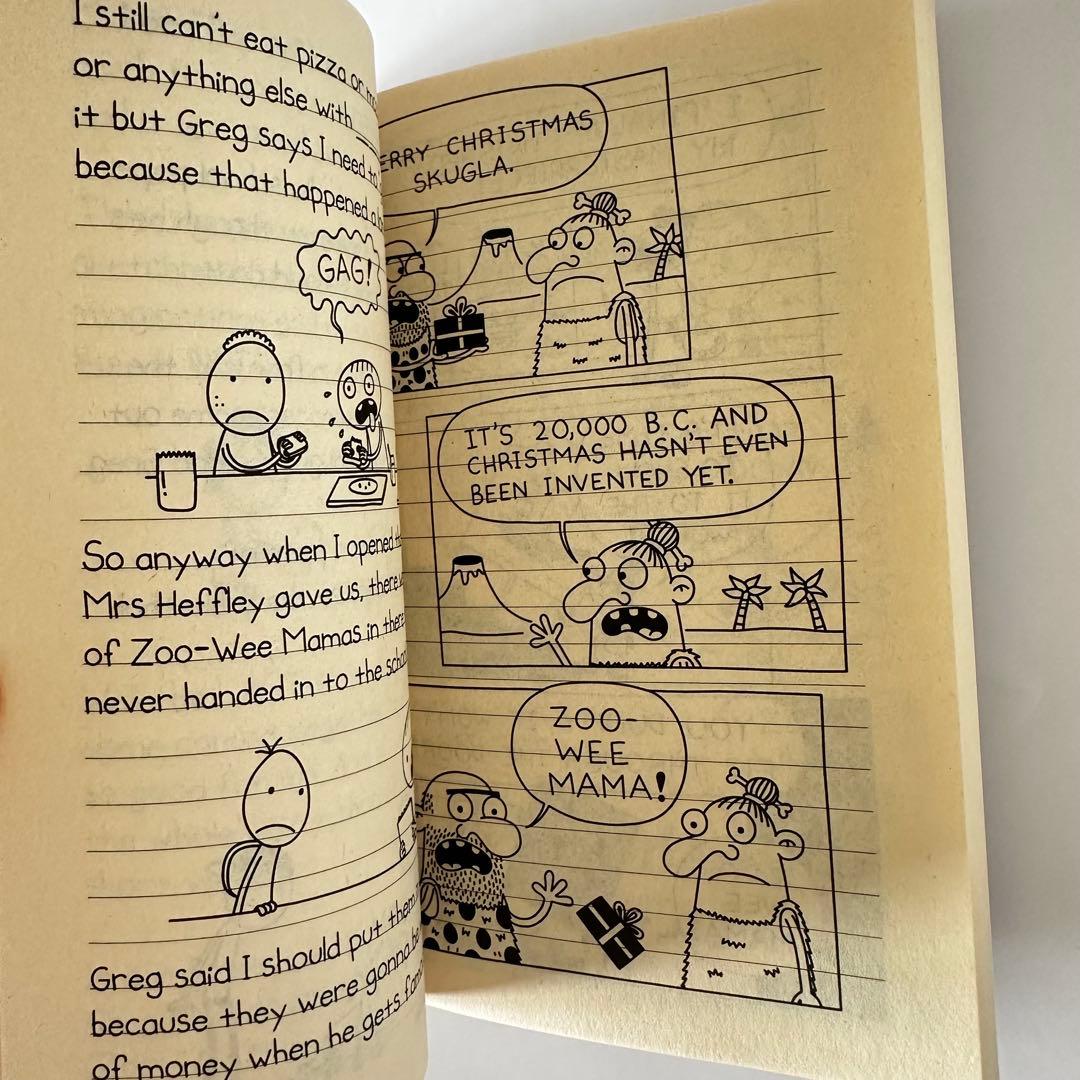 I still can't eat pizza or
or anything else with
it but Greg says I need to
because that happened
GAG!
So anyway when I opened
Mrs Heffley gave us, there
of Zoo-Wee Mamas in there
never handed in to the
Greg said I should put them
because they were gonna be
of money when he gets
ERRY CHRISTMAS
SKUGLA.
IT'S 20,000 B.C. AND
CHRISTMAS HASN'T EVEN
BEEN INVENTED YET.
ZOO-
WEE
MAMA!